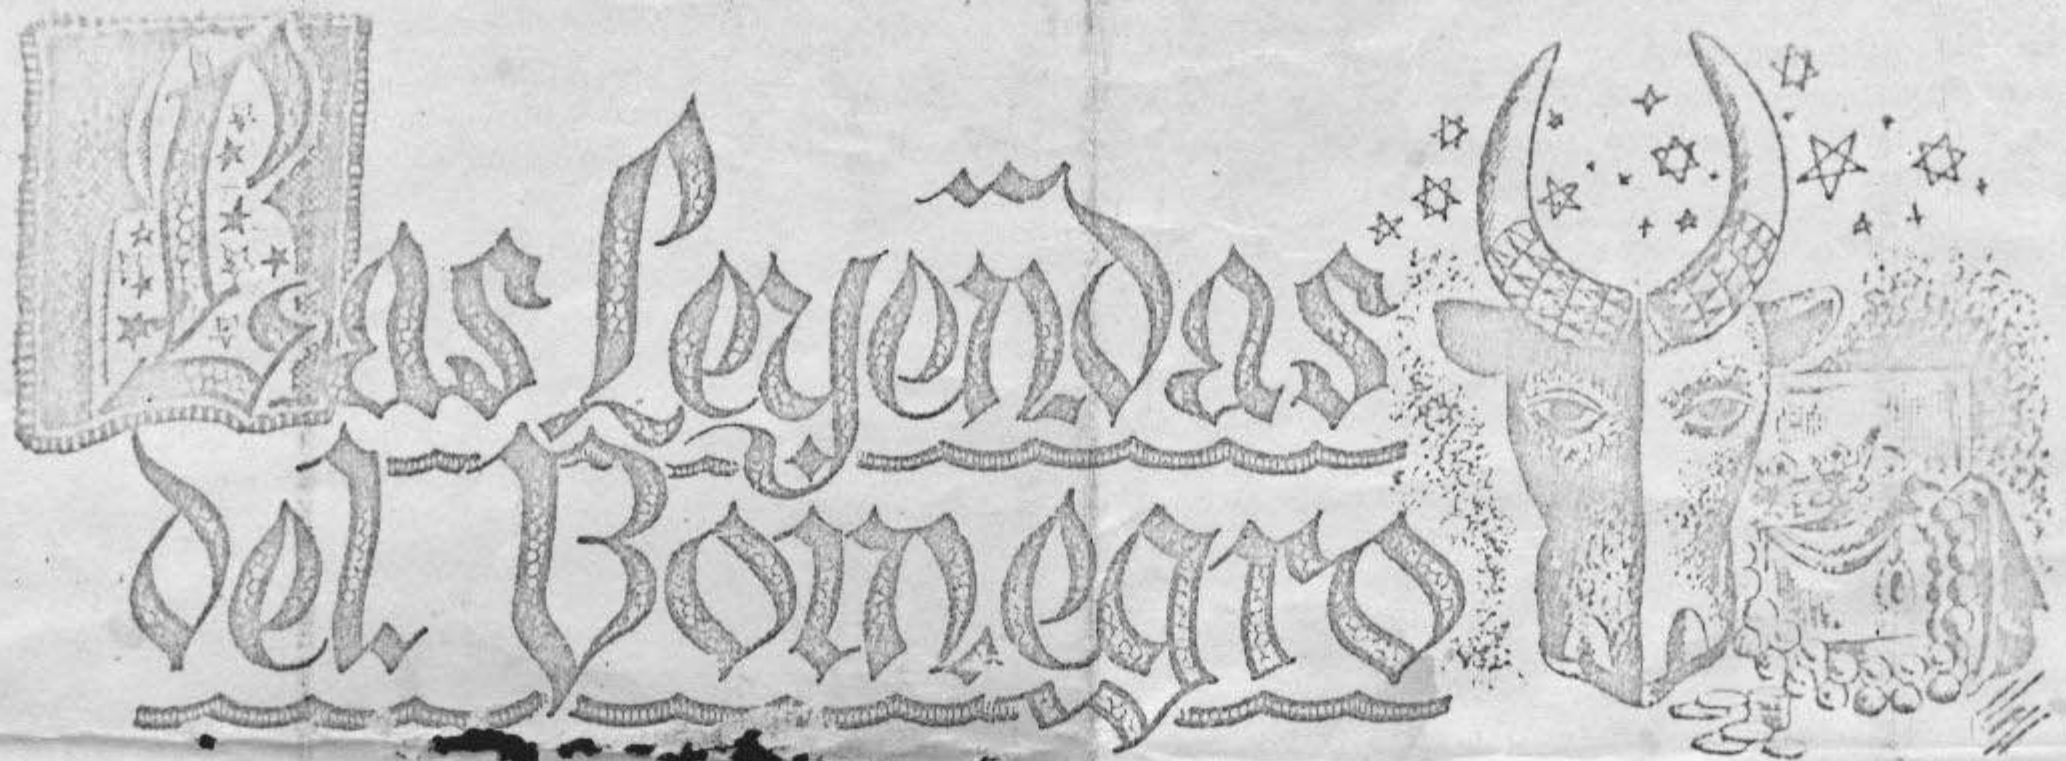 Las Leyendas
del Bornegro